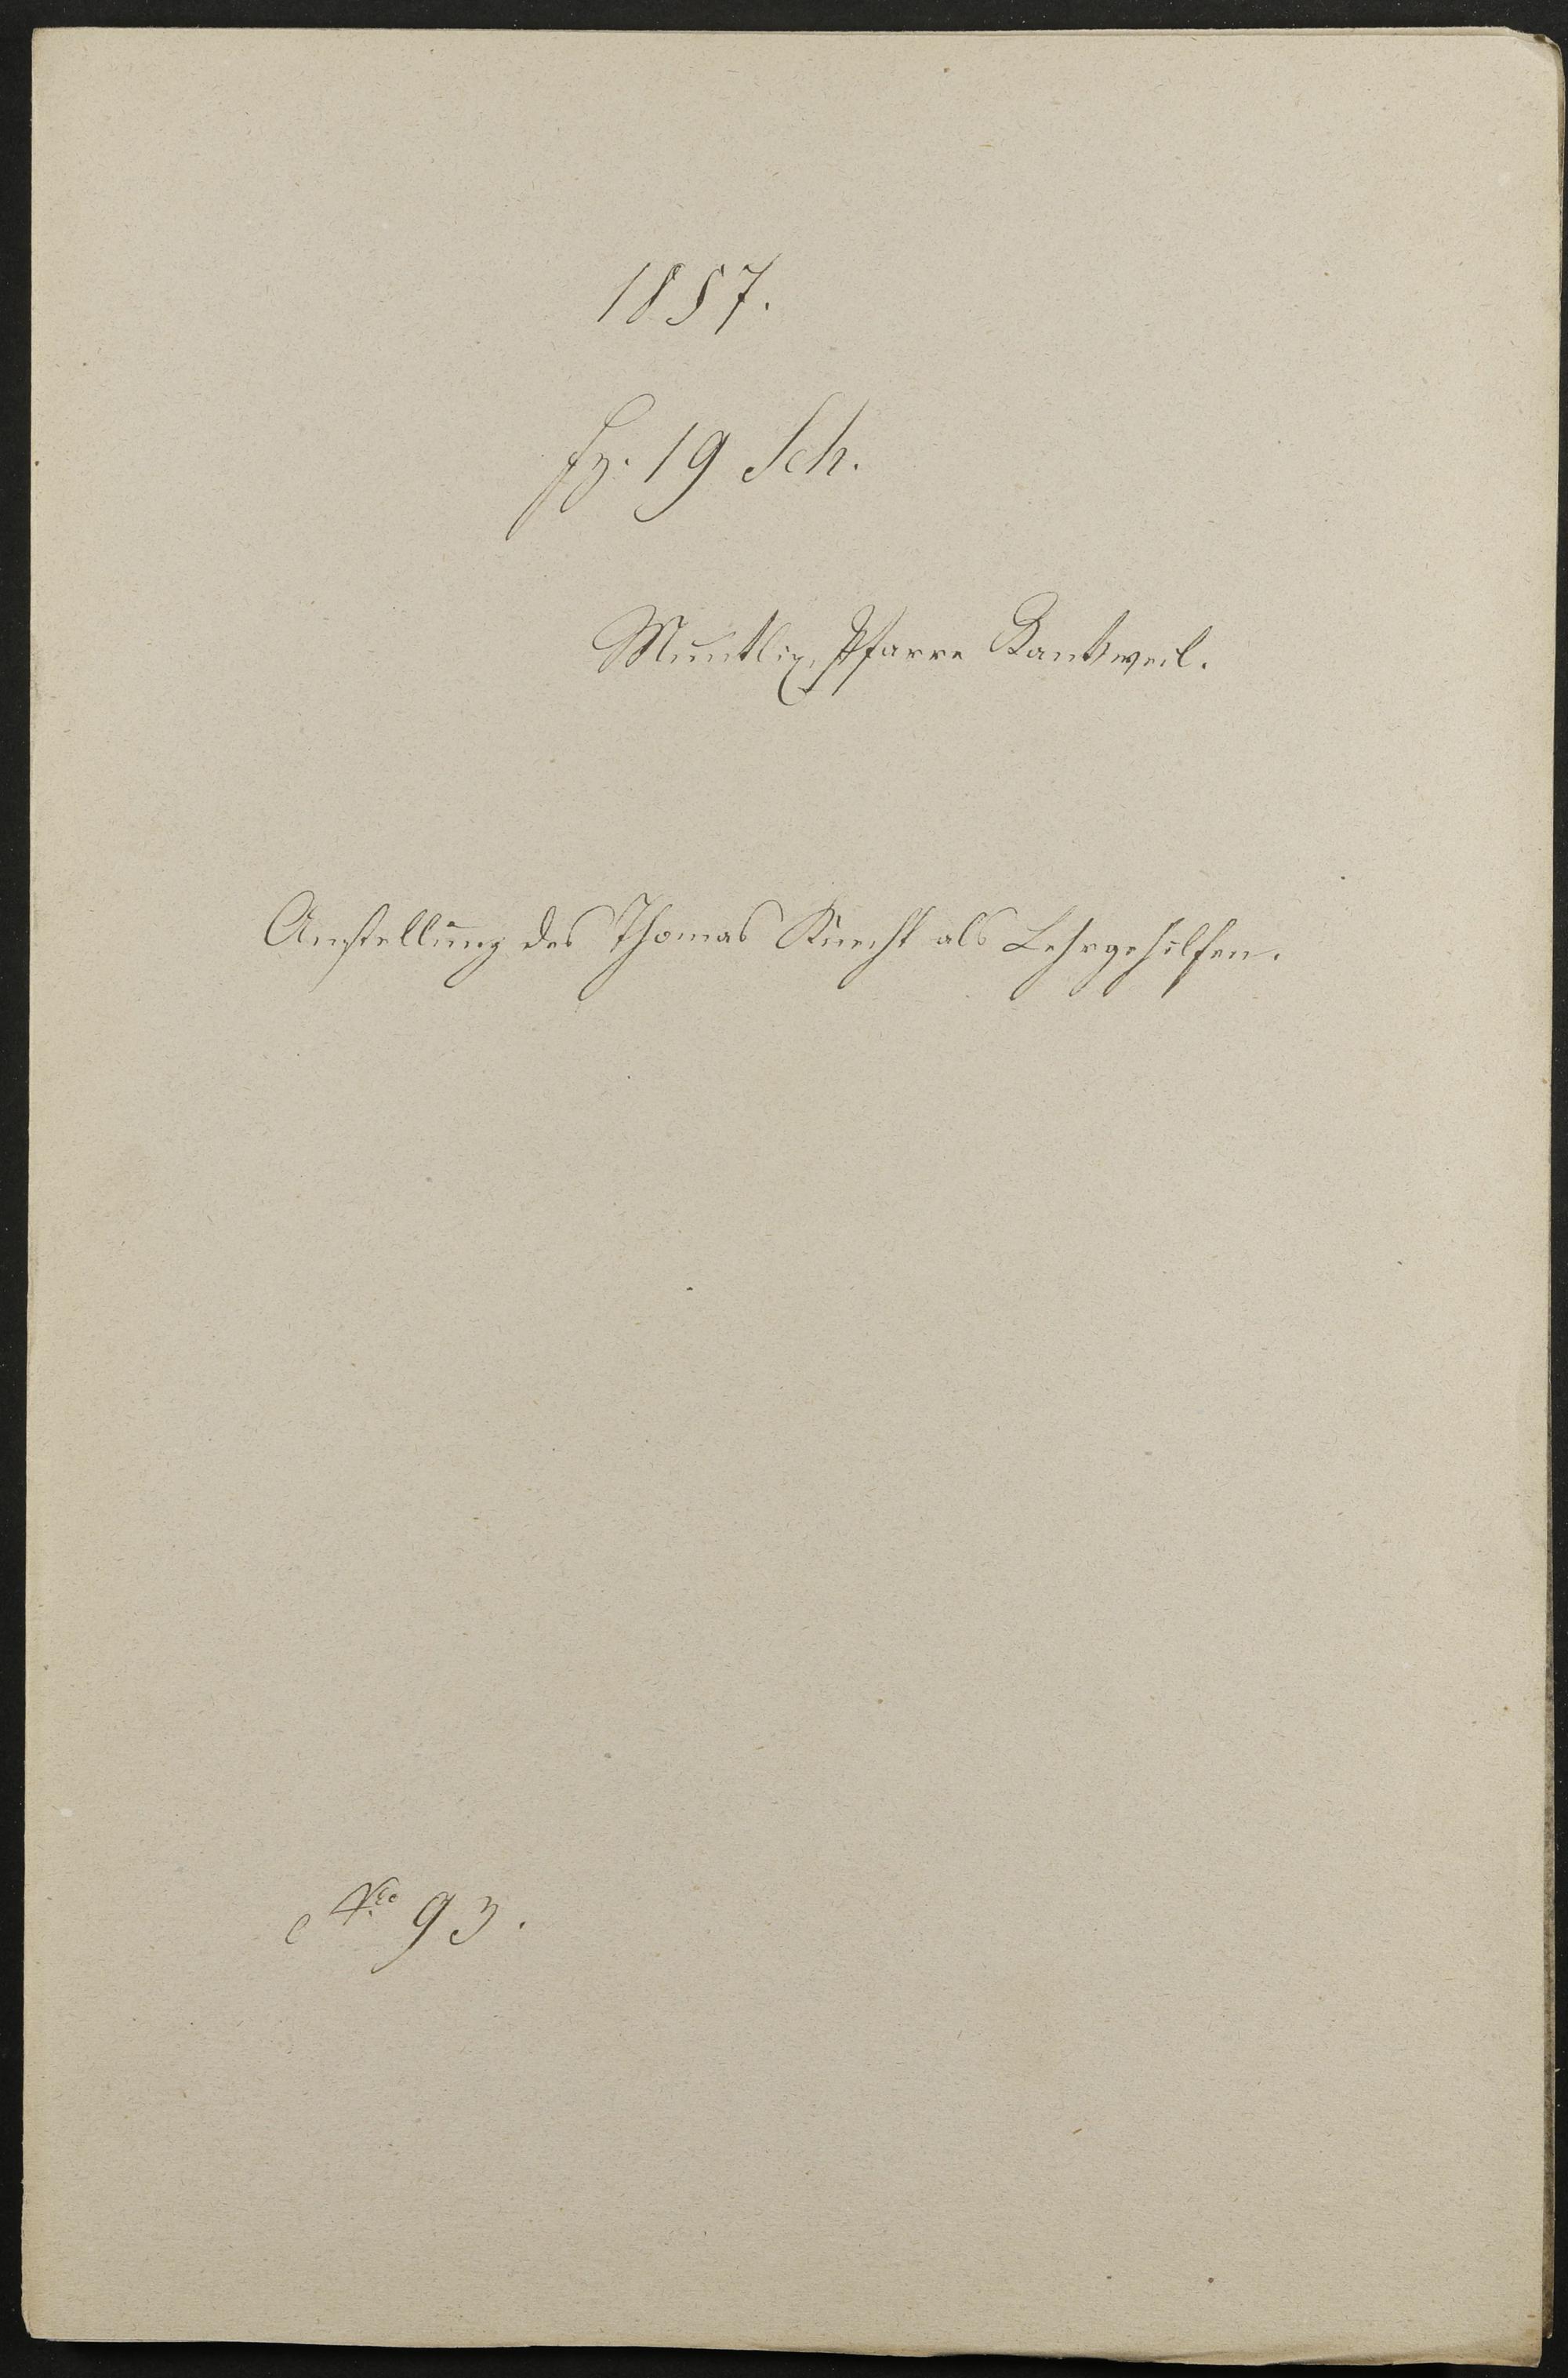 1857.
fz. 19 Sch.
Muntlix, Pfarre Rankweil.
Anstellung des Thomas Knecht als Lehrgehilfen.
Nro 93.